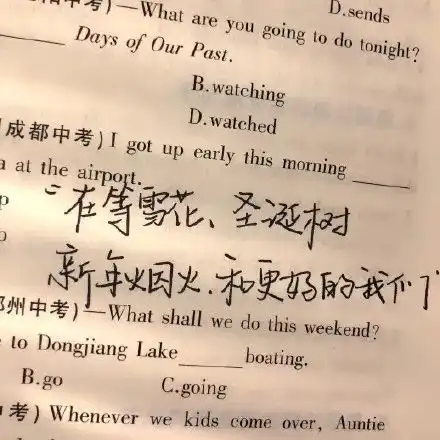 D.sends
考)—What are you going to do tonight?
Days of Our Past.
B.watching
D.watched
成都中考)I got up early this morning
at the airport.
“在等雪花、圣诞树
新年烟火.和更好的我们”
州中考)—What shall we do this weekend?
to Dongjiang Lake______boating.
B.go C.going
考) Whenever we kids come over, Auntie